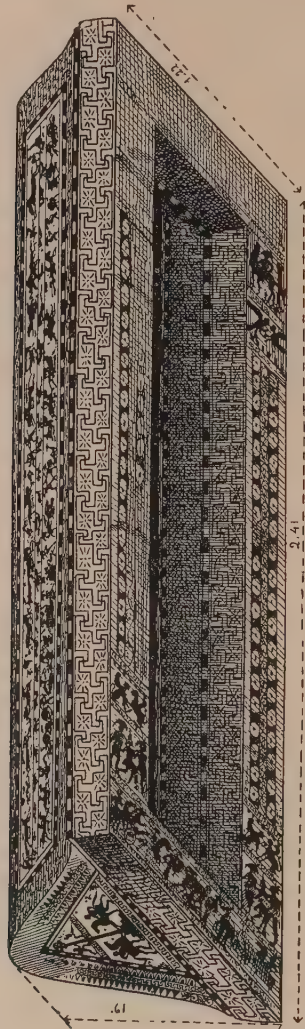 1.22
2.41
.61